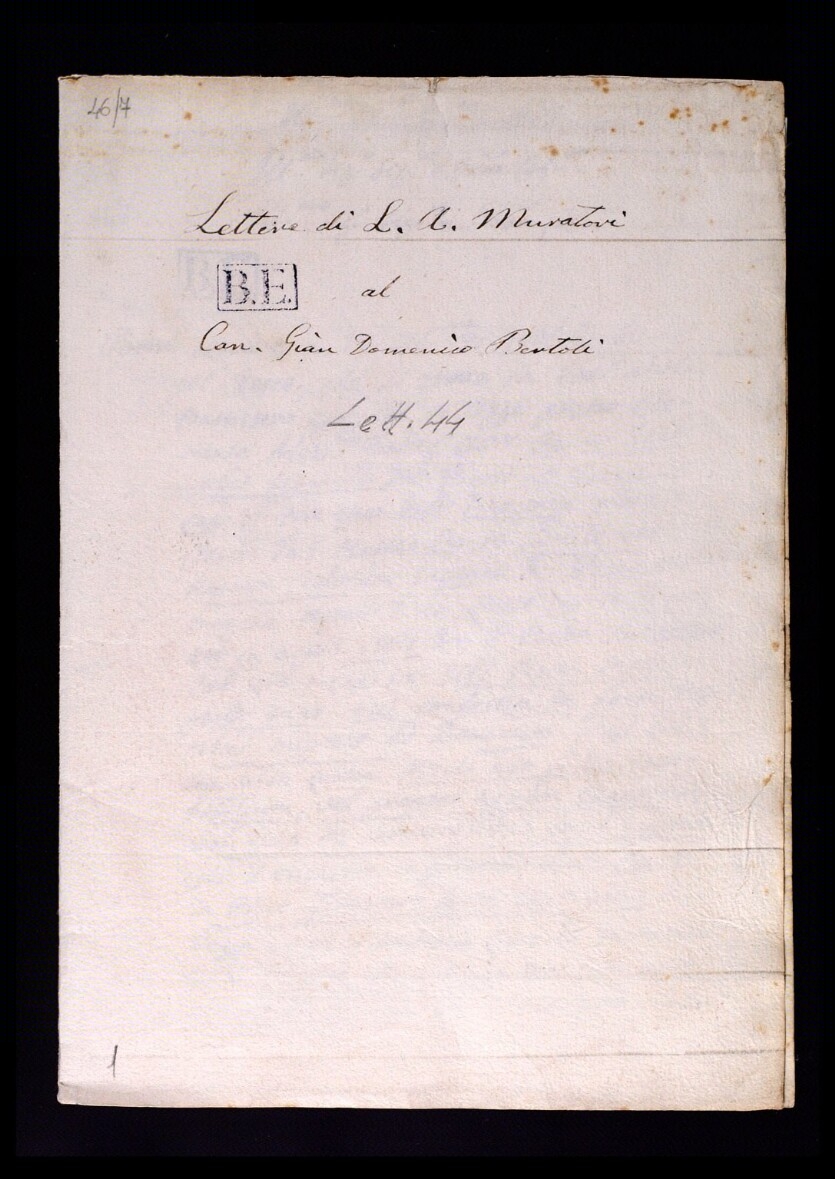 46/7
Lettere di L. A. Muratori
B.E.
al
Can. Gian Domenico Bertoli
Lett. 44
1